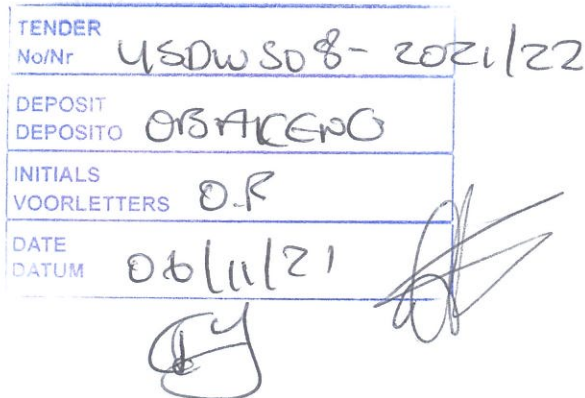 TENDER
No/Nr USDWS08-2021/22
DEPOSIT
DEPOSITO OBAKENG
INITIALS
VOORLETTERS O.R
DATE
DATUM 06/11/21